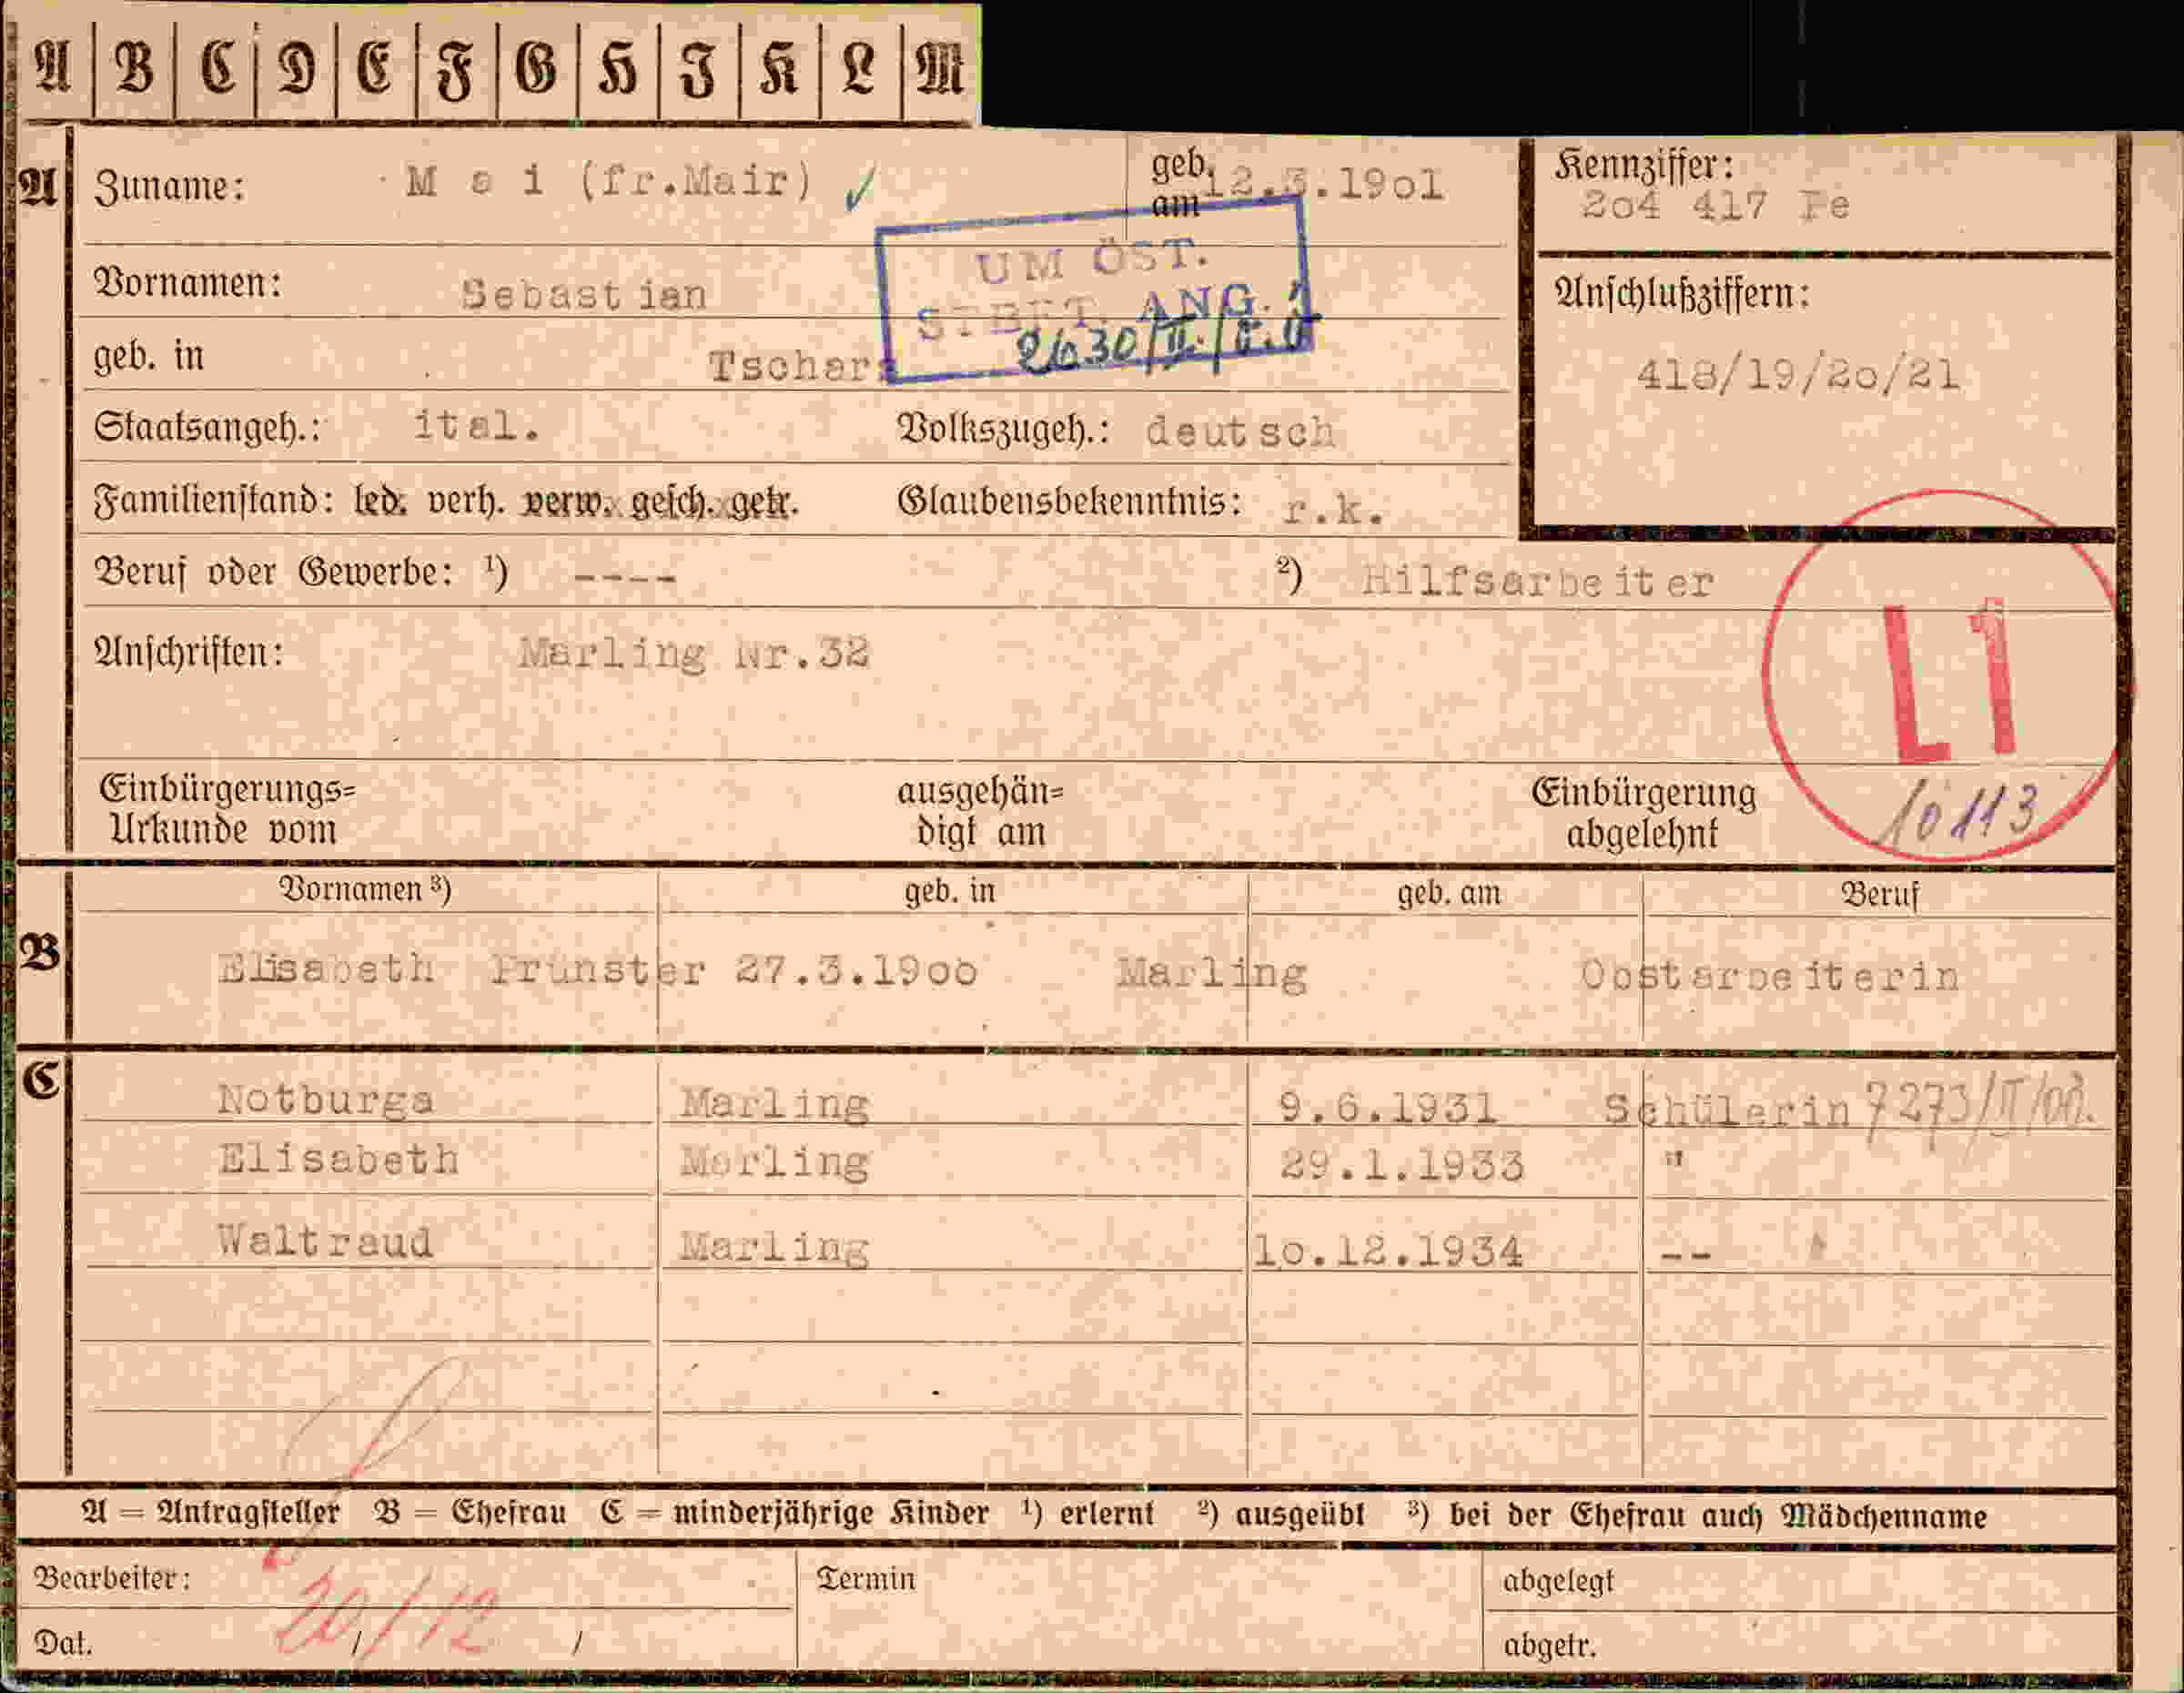 A B C D E F G H I K L M
A
Zuname: M a i (fr.Mair) ✓ geb. am 12.3.19o1
Kennziffer:
2o4 417 Fe
UM ÖST.
STBFT. ANG.
Vornamen: Sebastian
Anschlußziffern:
geb. in Tschars
418/19/2o/21
Staatsangeh.: ital. Volkszugeh.: deutsch
Familienstand: led. verh. verw. gesch. getr. Glaubensbekenntnis: r.k.
Beruf oder Gewerbe: ¹) ---- ²) Hilfsarbeiter
Anschriften: Marling Nr.32
L1
Einbürgerungs=
Urkunde vom
ausgehän=
digt am
Einbürgerung
abgelehnt
10113
Vornamen ³) geb. in geb. am Beruf
B
Elisabeth Prünster 27.3.19oo Marling Obstarbeiterin
C
Notburga Marling 9.6.1931 Schülerin 7273/II/
Elisabeth Marling 29.1.1933 "
Waltraud Marling 1o.12.1934 --
A = Antragsteller B = Ehefrau C = minderjährige Kinder ¹) erlernt ²) ausgeübt ³) bei der Ehefrau auch Mädchenname
Bearbeiter: Termin abgelegt
Dat. 20/12 / / abgetr.